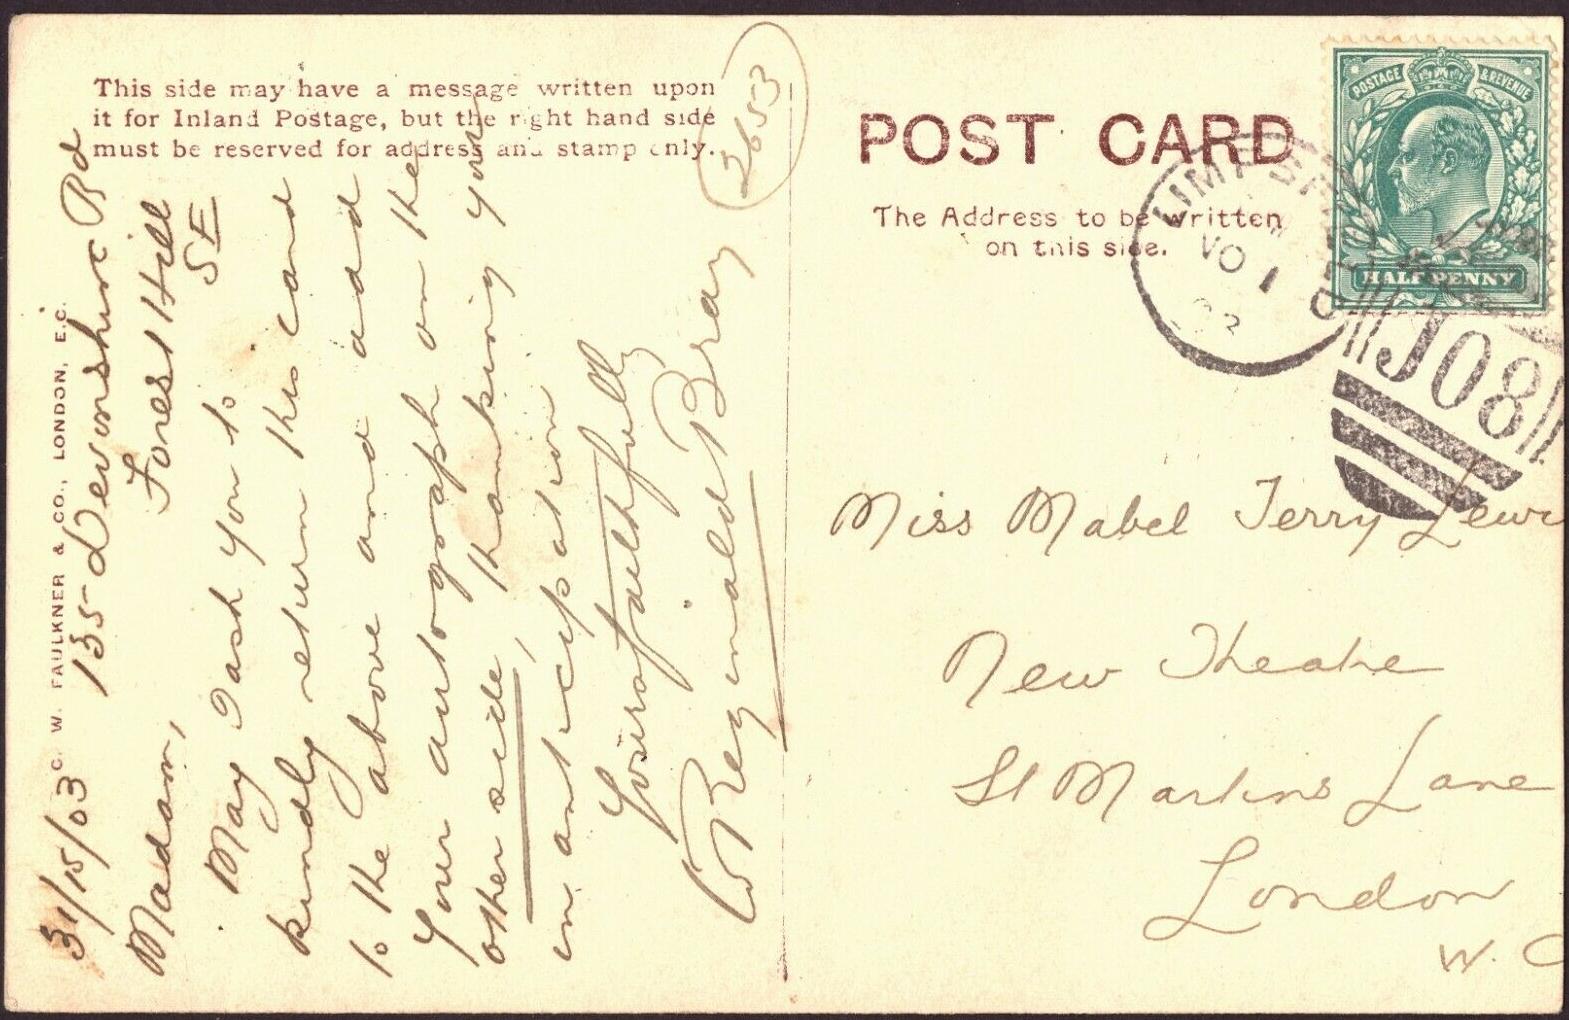 This side may have a message written upon
it for Inland Postage, but the right hand side
must be reserved for address and stamp only.
2653
C. W. FAULKNER & CO., LONDON, E.C.
135 Devonshire Rd
Forest Hill
SE
Madam,
May I ask you to
kindly return this card
to the above and add
Your autograph on the
other side, thanking you
in anticipation
Yours faithfully
Reginald Bray
POST CARD
The Address to be written
on this side.
POSTAGE & REVENUE
HALFPENNY
J08
Miss Mabel Terry Lewi
New Theatre
St Martins Lane
London
W. C